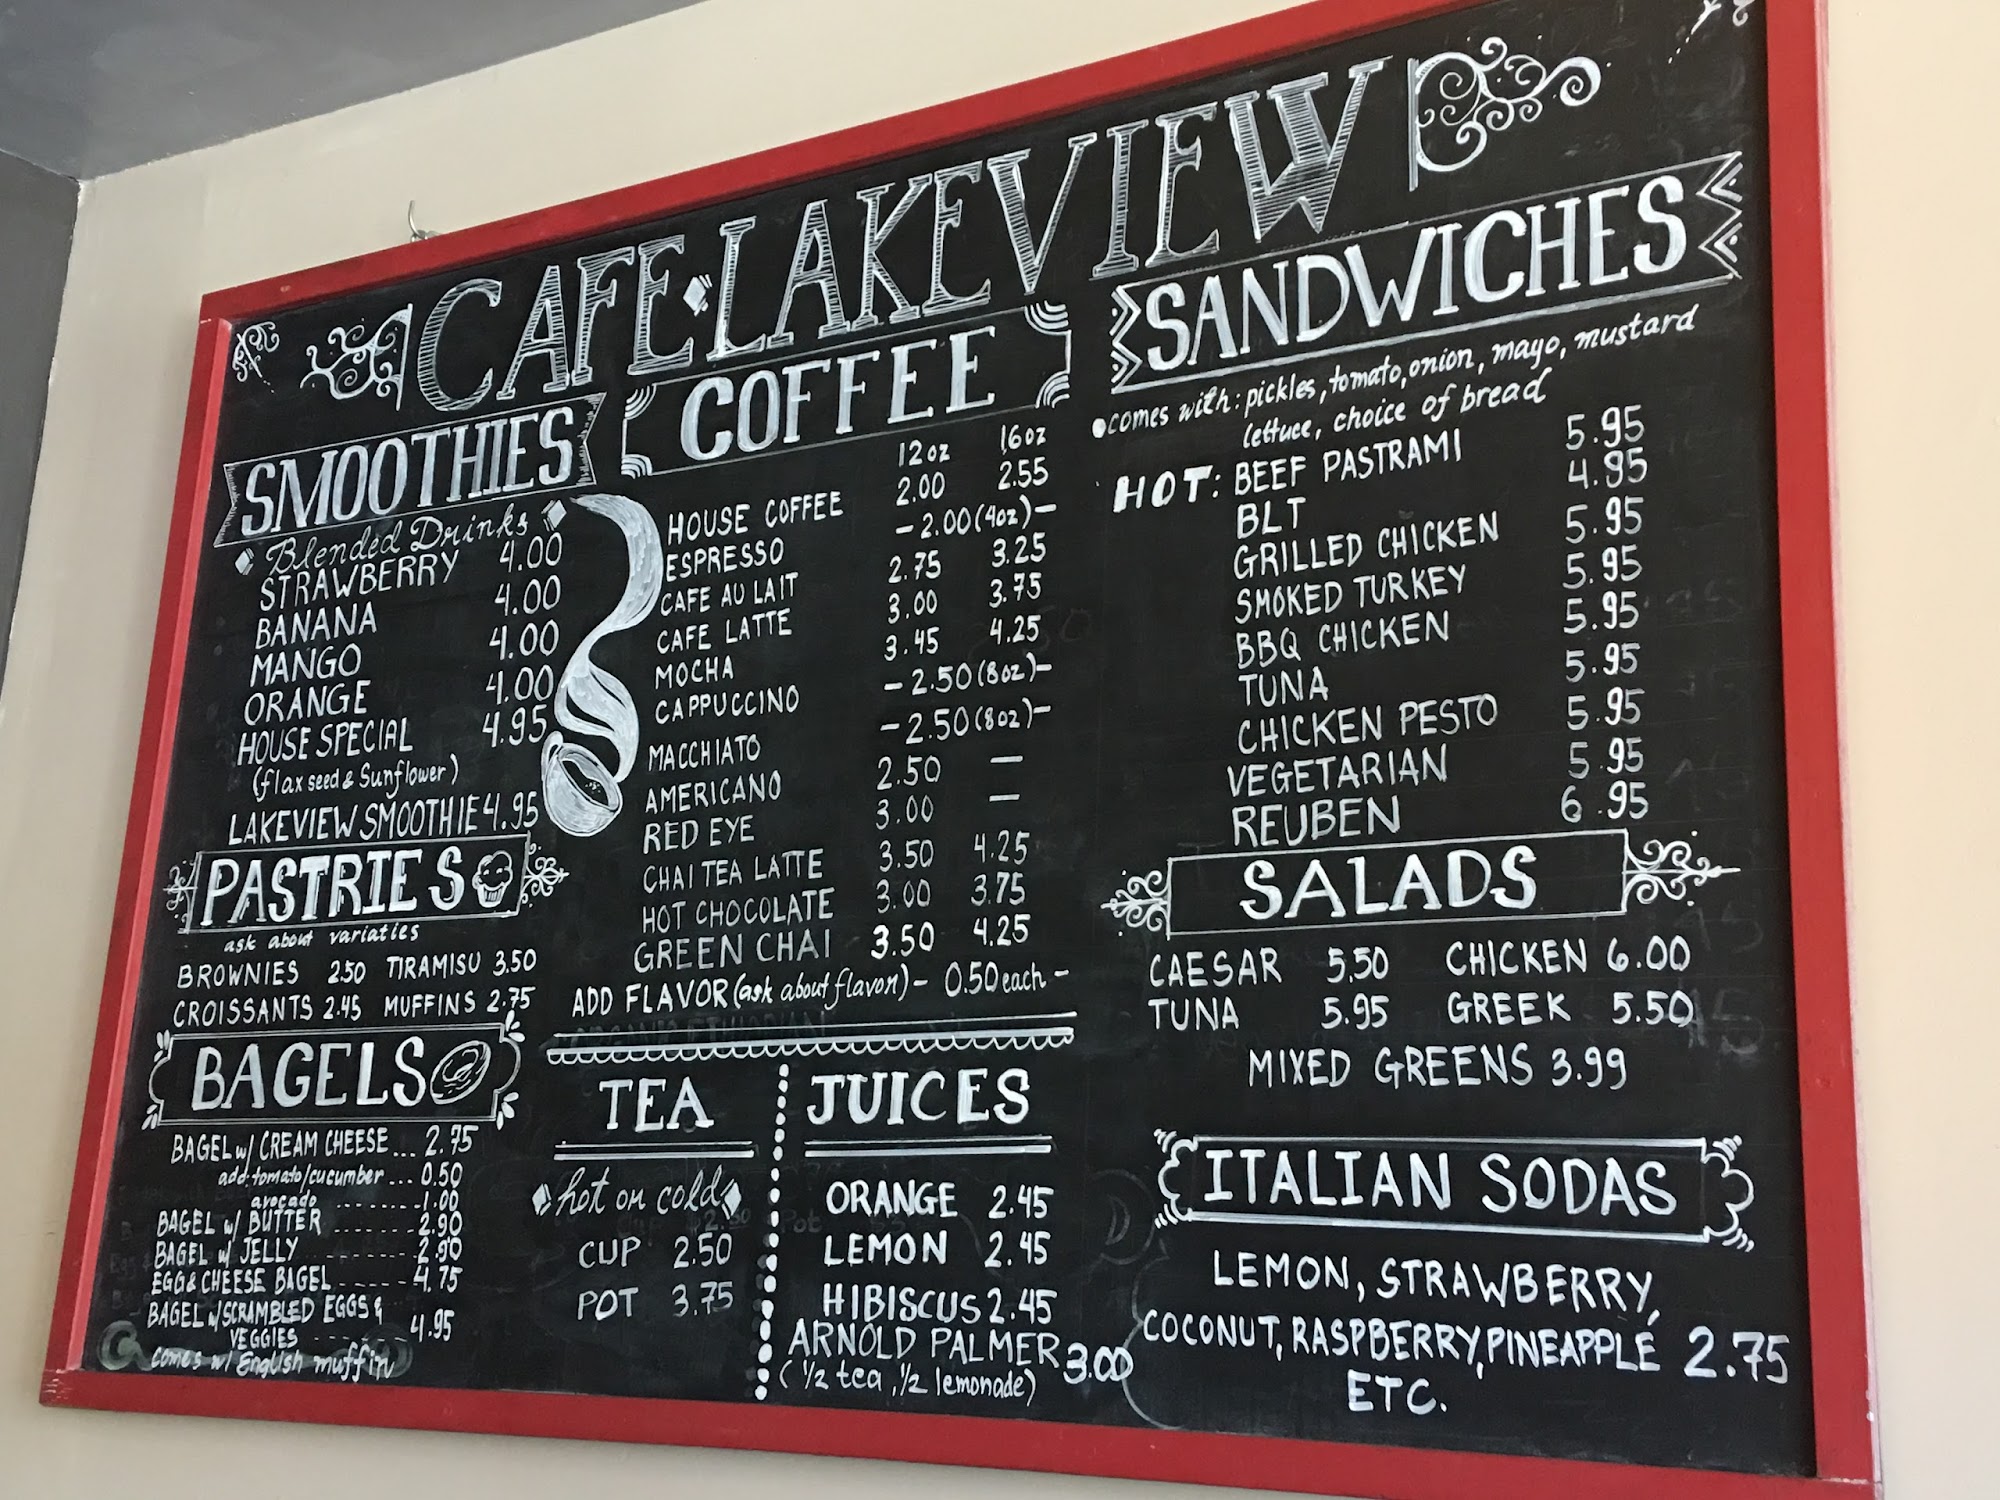 CAFE·LAKEVIEW
SMOOTHIES
Blended Drinks
STRAWBERRY 4.00
BANANA 4.00
MANGO 4.00
ORANGE 4.00
HOUSE SPECIAL 4.95
(flax seed & Sunflower)
LAKEVIEW SMOOTHIE 4.95
PASTRIES
ask about variaties
BROWNIES 2.50 TIRAMISU 3.50
CROISSANTS 2.45 MUFFINS 2.75
BAGELS
BAGEL w/ CREAM CHEESE... 2.75
add: tomato/cucumber ... 0.50
avocado -------1.00
BAGEL w/ BUTTER --------- 2.90
BAGEL w/ JELLY --------- 2.90
EGG & CHEESE BAGEL ------- 4.75
BAGEL w/ SCRAMBLED EGGS &
VEGGIES -------- 4.95
comes w/ English muffin
COFFEE
12oz 16oz
HOUSE COFFEE 2.00 2.55
ESPRESSO -2.00(4oz)-
CAFE AU LAIT 2.75 3.25
CAFE LATTE 3.00 3.75
MOCHA 3.45 4.25
CAPPUCCINO -2.50(8oz)-
MACCHIATO -2.50(8oz)-
AMERICANO 2.50 —
RED EYE 3.00 —
CHAI TEA LATTE 3.50 4.25
HOT CHOCOLATE 3.00 3.75
GREEN CHAI 3.50 4.25
ADD FLAVOR (ask about flavor) - 0.50 each -
TEA
hot or cold
CUP 2.50
POT 3.75
JUICES
ORANGE 2.45
LEMON 2.45
HIBISCUS 2.45
ARNOLD PALMER 3.00
(1/2 tea, 1/2 lemonade)
SANDWICHES
•comes with: pickles, tomato, onion, mayo, mustard
lettuce, choice of bread
HOT: BEEF PASTRAMI 5.95
BLT 4.95
GRILLED CHICKEN 5.95
SMOKED TURKEY 5.95
BBQ CHICKEN 5.95
TUNA 5.95
CHICKEN PESTO 5.95
VEGETARIAN 5.95
REUBEN 6.95
SALADS
CAESAR 5.50 CHICKEN 6.00
TUNA 5.95 GREEK 5.50
MIXED GREENS 3.99
ITALIAN SODAS
LEMON, STRAWBERRY,
COCONUT, RASPBERRY, PINEAPPLE 2.75
ETC.